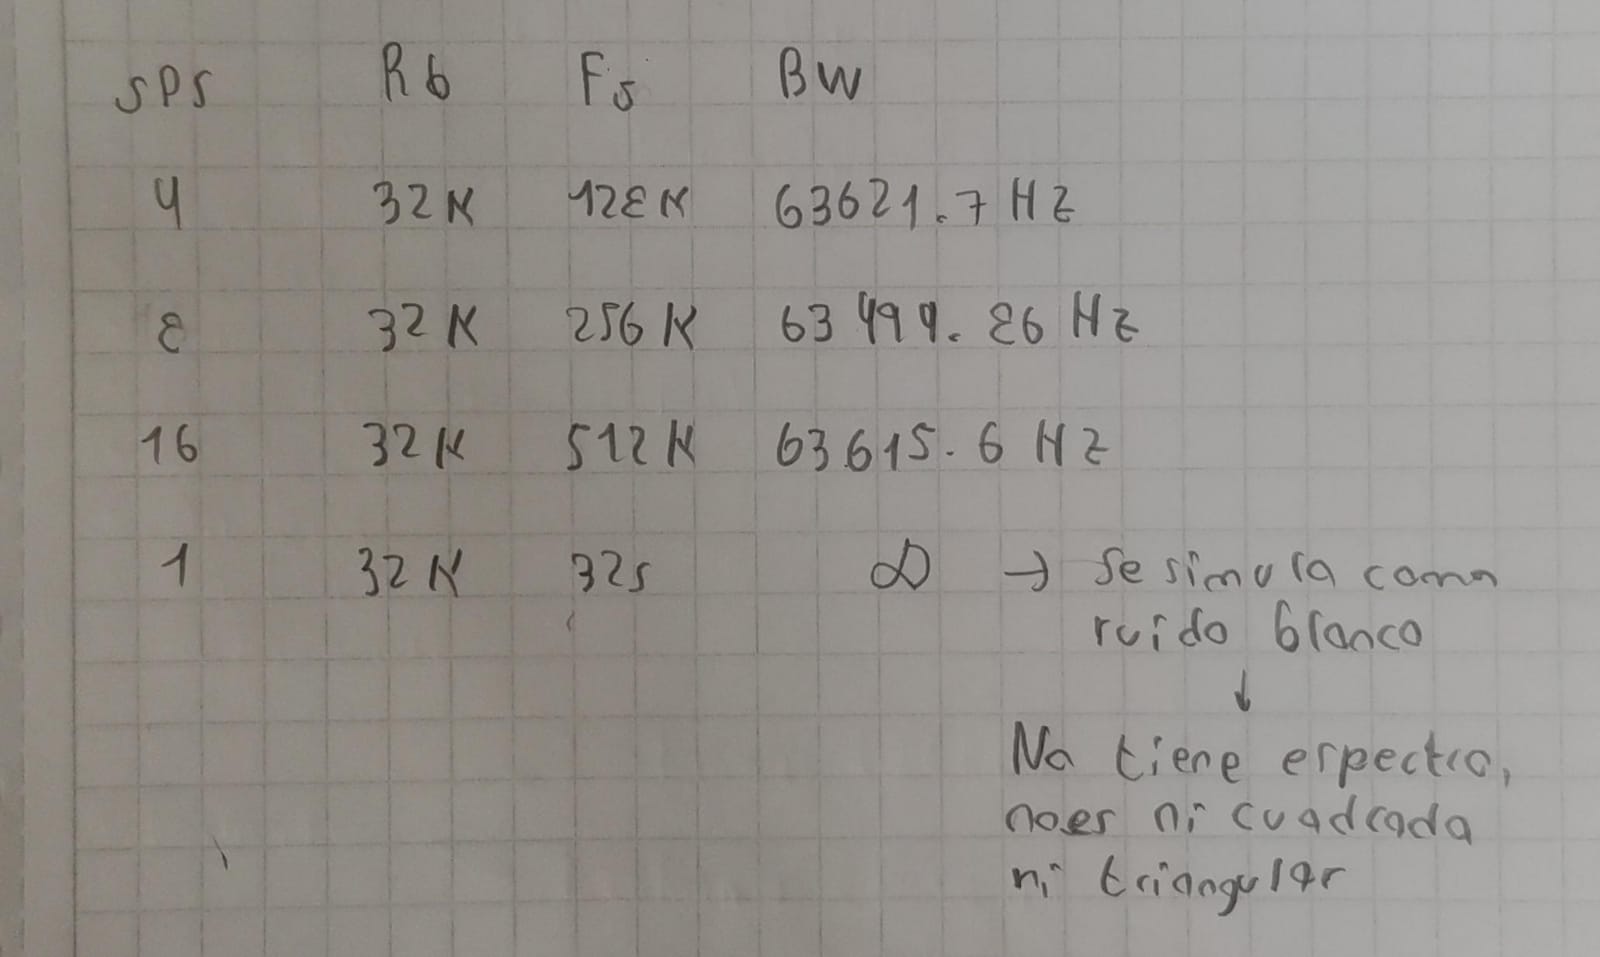 SPS Rb Fs BW
4 32K 128K 63621.7 HZ
8 32K 256K 63499.86 HZ
16 32K 512K 63615.6 HZ
1 32K 32s ∞ → Se simula como
ruido blanco
↓
No tiene espectro,
no es ni cuadrada
ni triangular